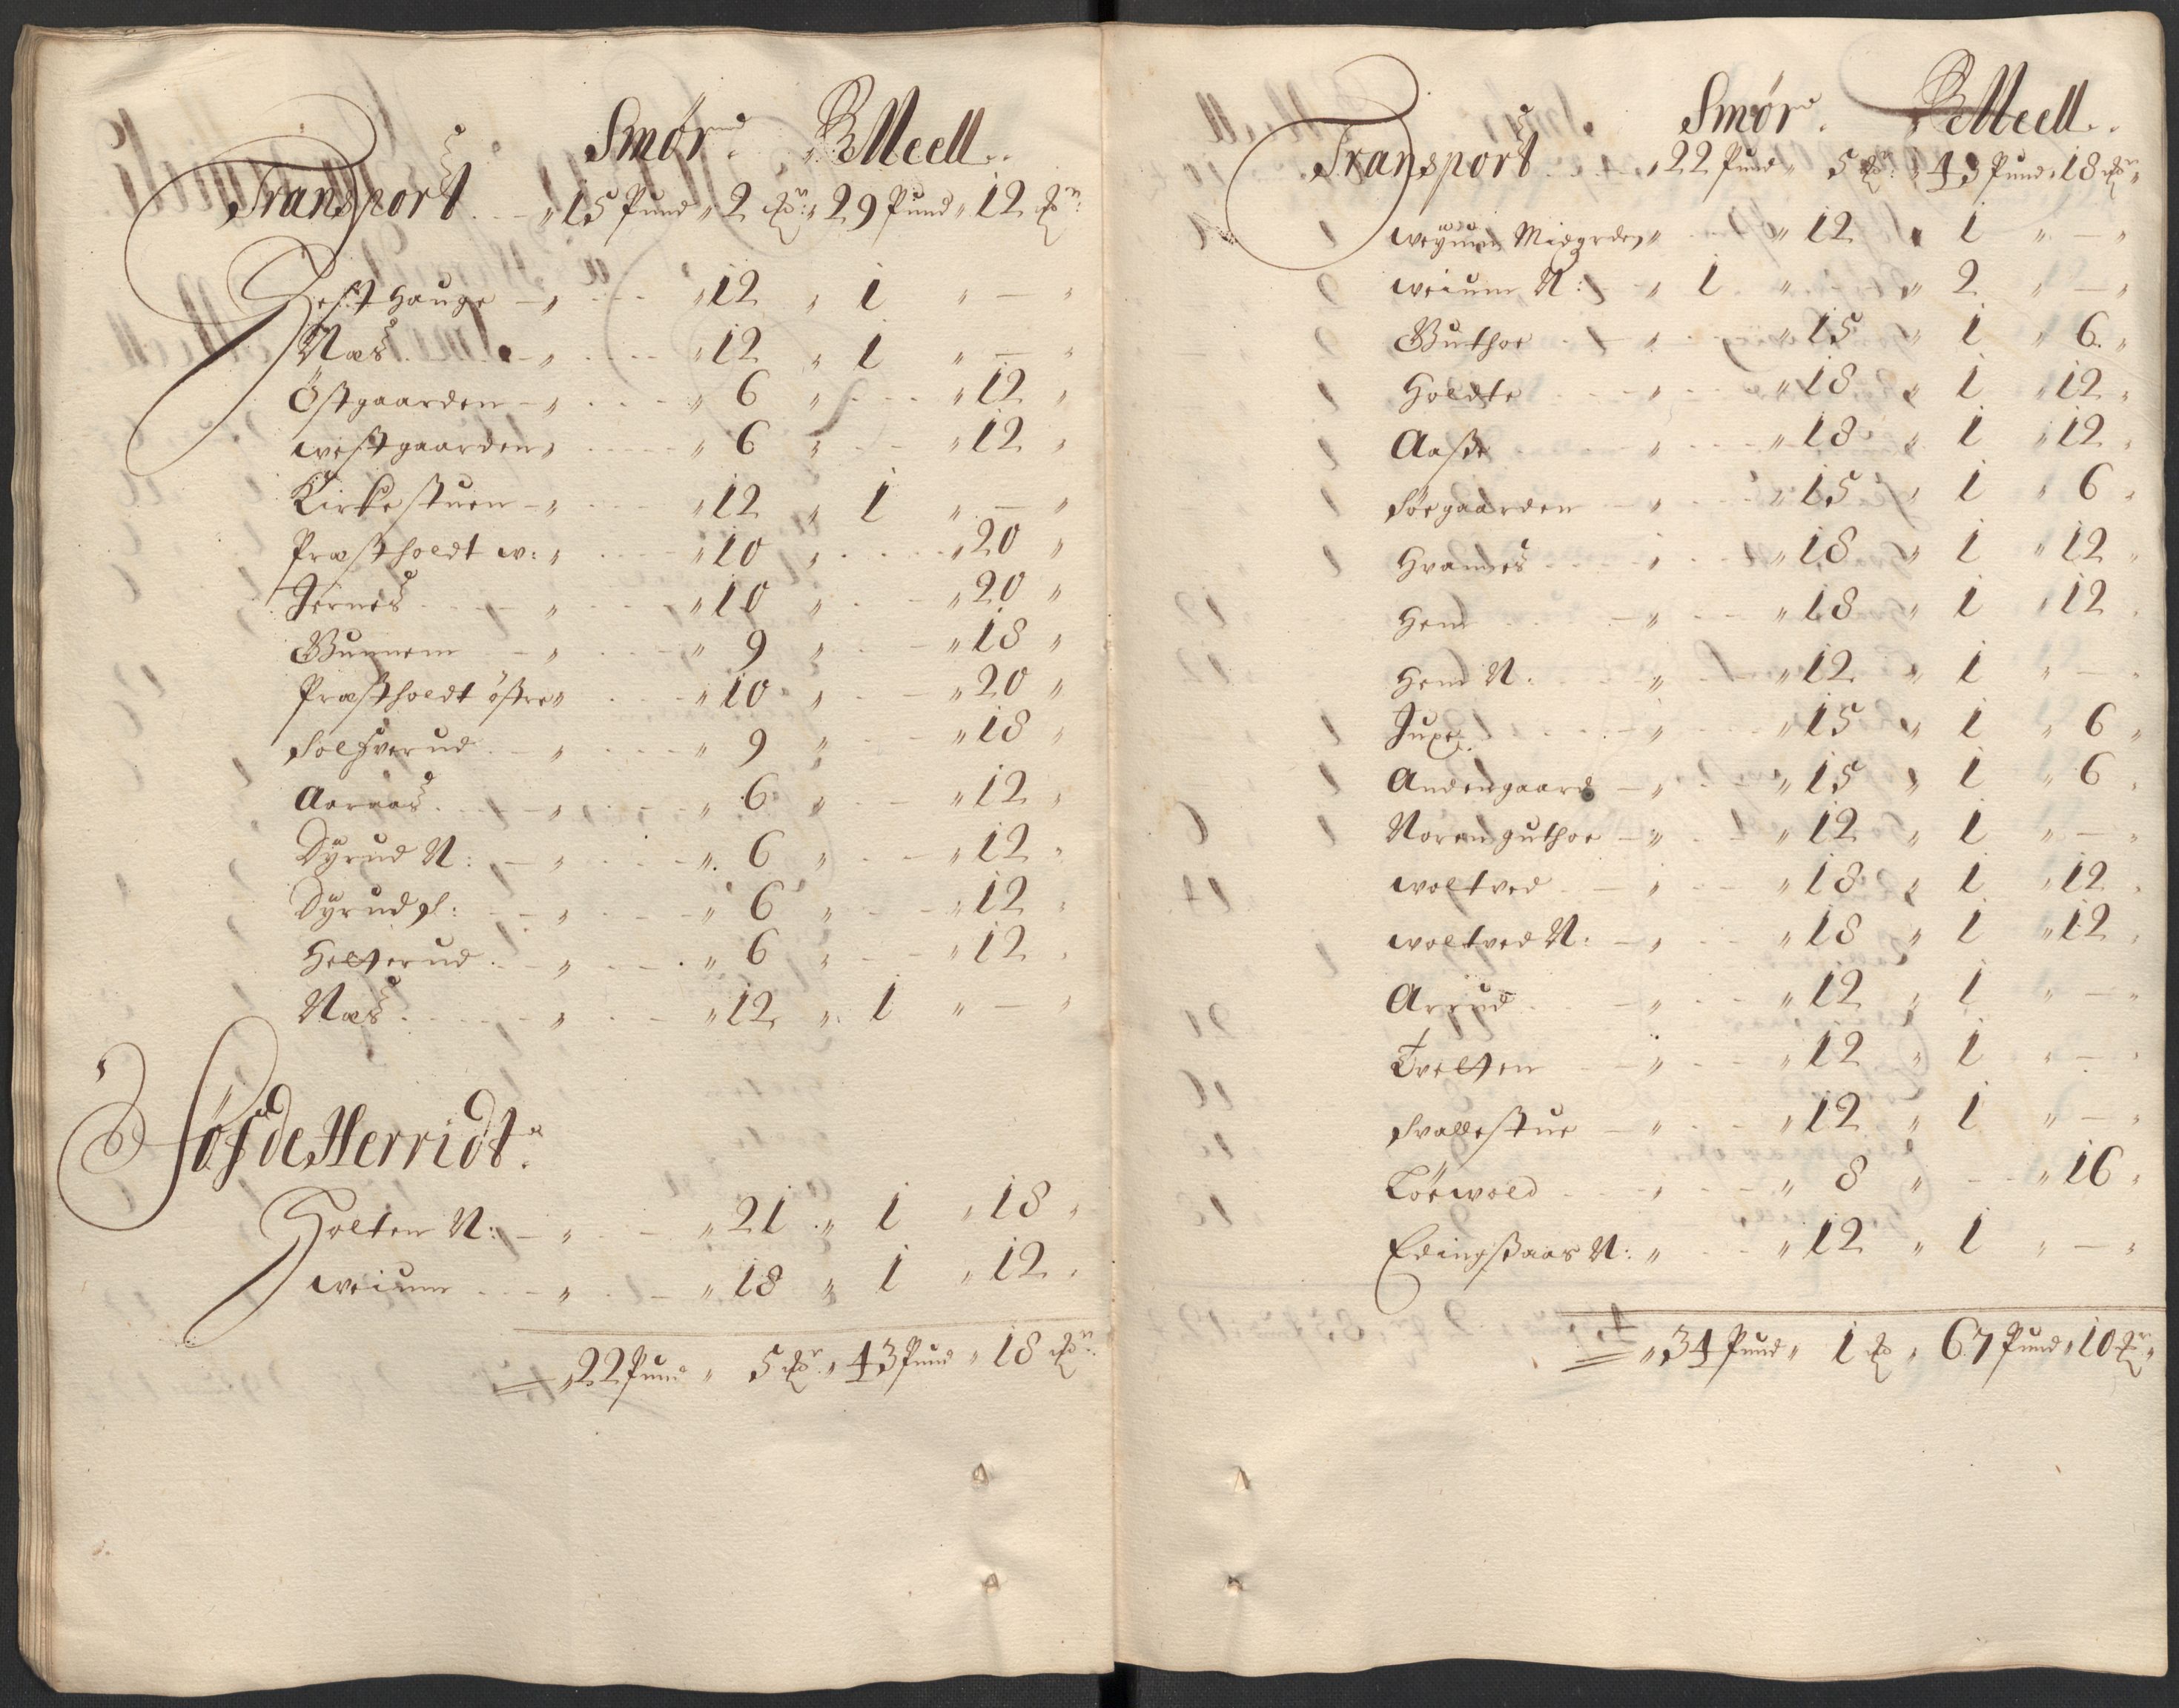 Smør. B Meell.
Transport - " 15 Pund " 2 ℔r: " 29 Pund " 12 ℔r:
Hest Hauge - " " 12 " 1 " - "
Næs - " " 12 " 1 " - "
Östgaarden - " " 6 " " 12 "
westgaarden " " 6 " " 12 "
Kirkestuen - " " 12 " 1 " - "
Præstholdt w: " " 10 " " 20 "
Jernes " " 10 " " 20 "
Bunnem " " 9 " " 18 "
Præstholdt östre " " 10 " " 20 "
" 9 " " 18 "
Aaraas " " 6 " " 12 "
Dÿrud N: - " " 6 " " 12 "
Dÿrud " " 6 " " 12 "
Helgerud - " " 6 " " 12 "
Næs " " 12 " 1 " - "
Söfde Herridt.
Holten N: - " " 21 " 1 " 18 "
weium " " 18 " 1 " 12 "
" 22 Pund " 5 ℔r " 43 Pund " 18 ℔r:
Smør. B Meell.
Transport " 22 Pund " 5 ℔r: " 43 Pund " 18 ℔r "
Midgrden " " 12 " 1 " - "
weium N: " 1 " " 2 " - "
Guthoe " " 15 " 1 " 6 "
Holdte " " 18 " 1 " 12 "
Aasse " " 18 " 1 " 12 "
Sörgaarden " " 15 " 1 " 6 "
Hvames " " 18 " 1 " 12 "
Hem " " 18 " 1 " 12 "
Hem N: " " 12 " 1 " - "
Juxe " " 15 " 1 " 6 "
Andengaard - " " 15 " 1 " 6 "
Noren guthoe - " " 12 " 1 " - "
woltved " " 18 " 1 " 12 "
woltved N: - " " 18 " 1 " 12 "
Arrud " " 12 " 1 " - "
Tvelten " " 12 " 1 " - "
Svallestue " " 12 " 1 " - "
Lörwold " " 8 " " 16 "
Edingsaas N: " " 12 " 1 " - "
" 34 Pund " 1 ℔ " 67 Pund " 10 ℔r "